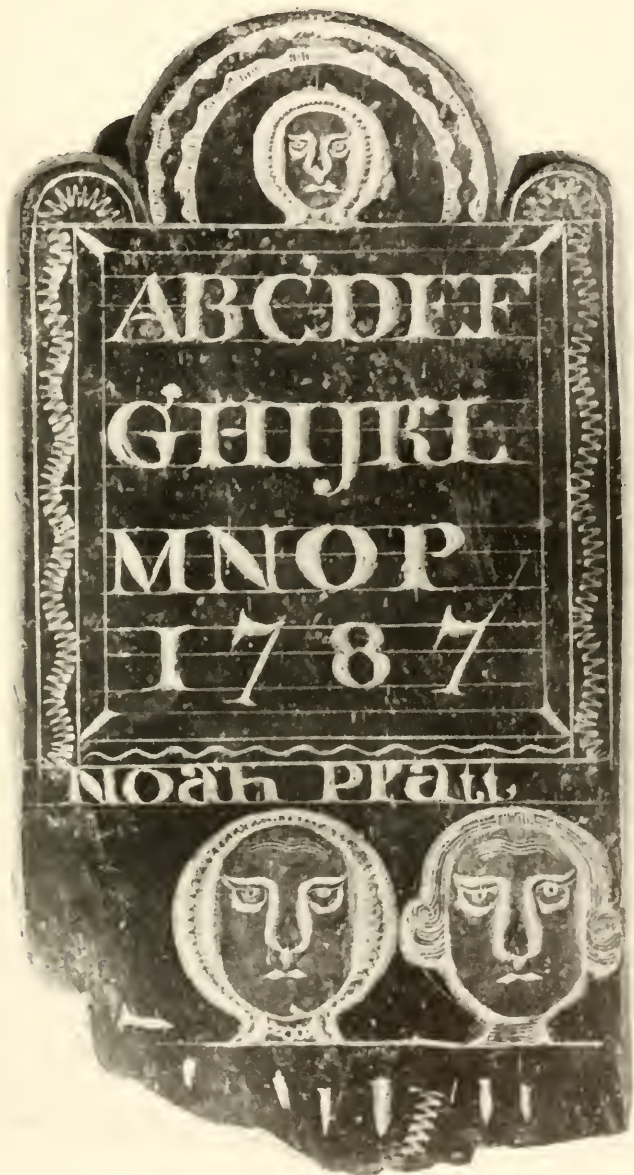 ABCDEF
GHIJKL
MNOP
1787
Noah Pratt